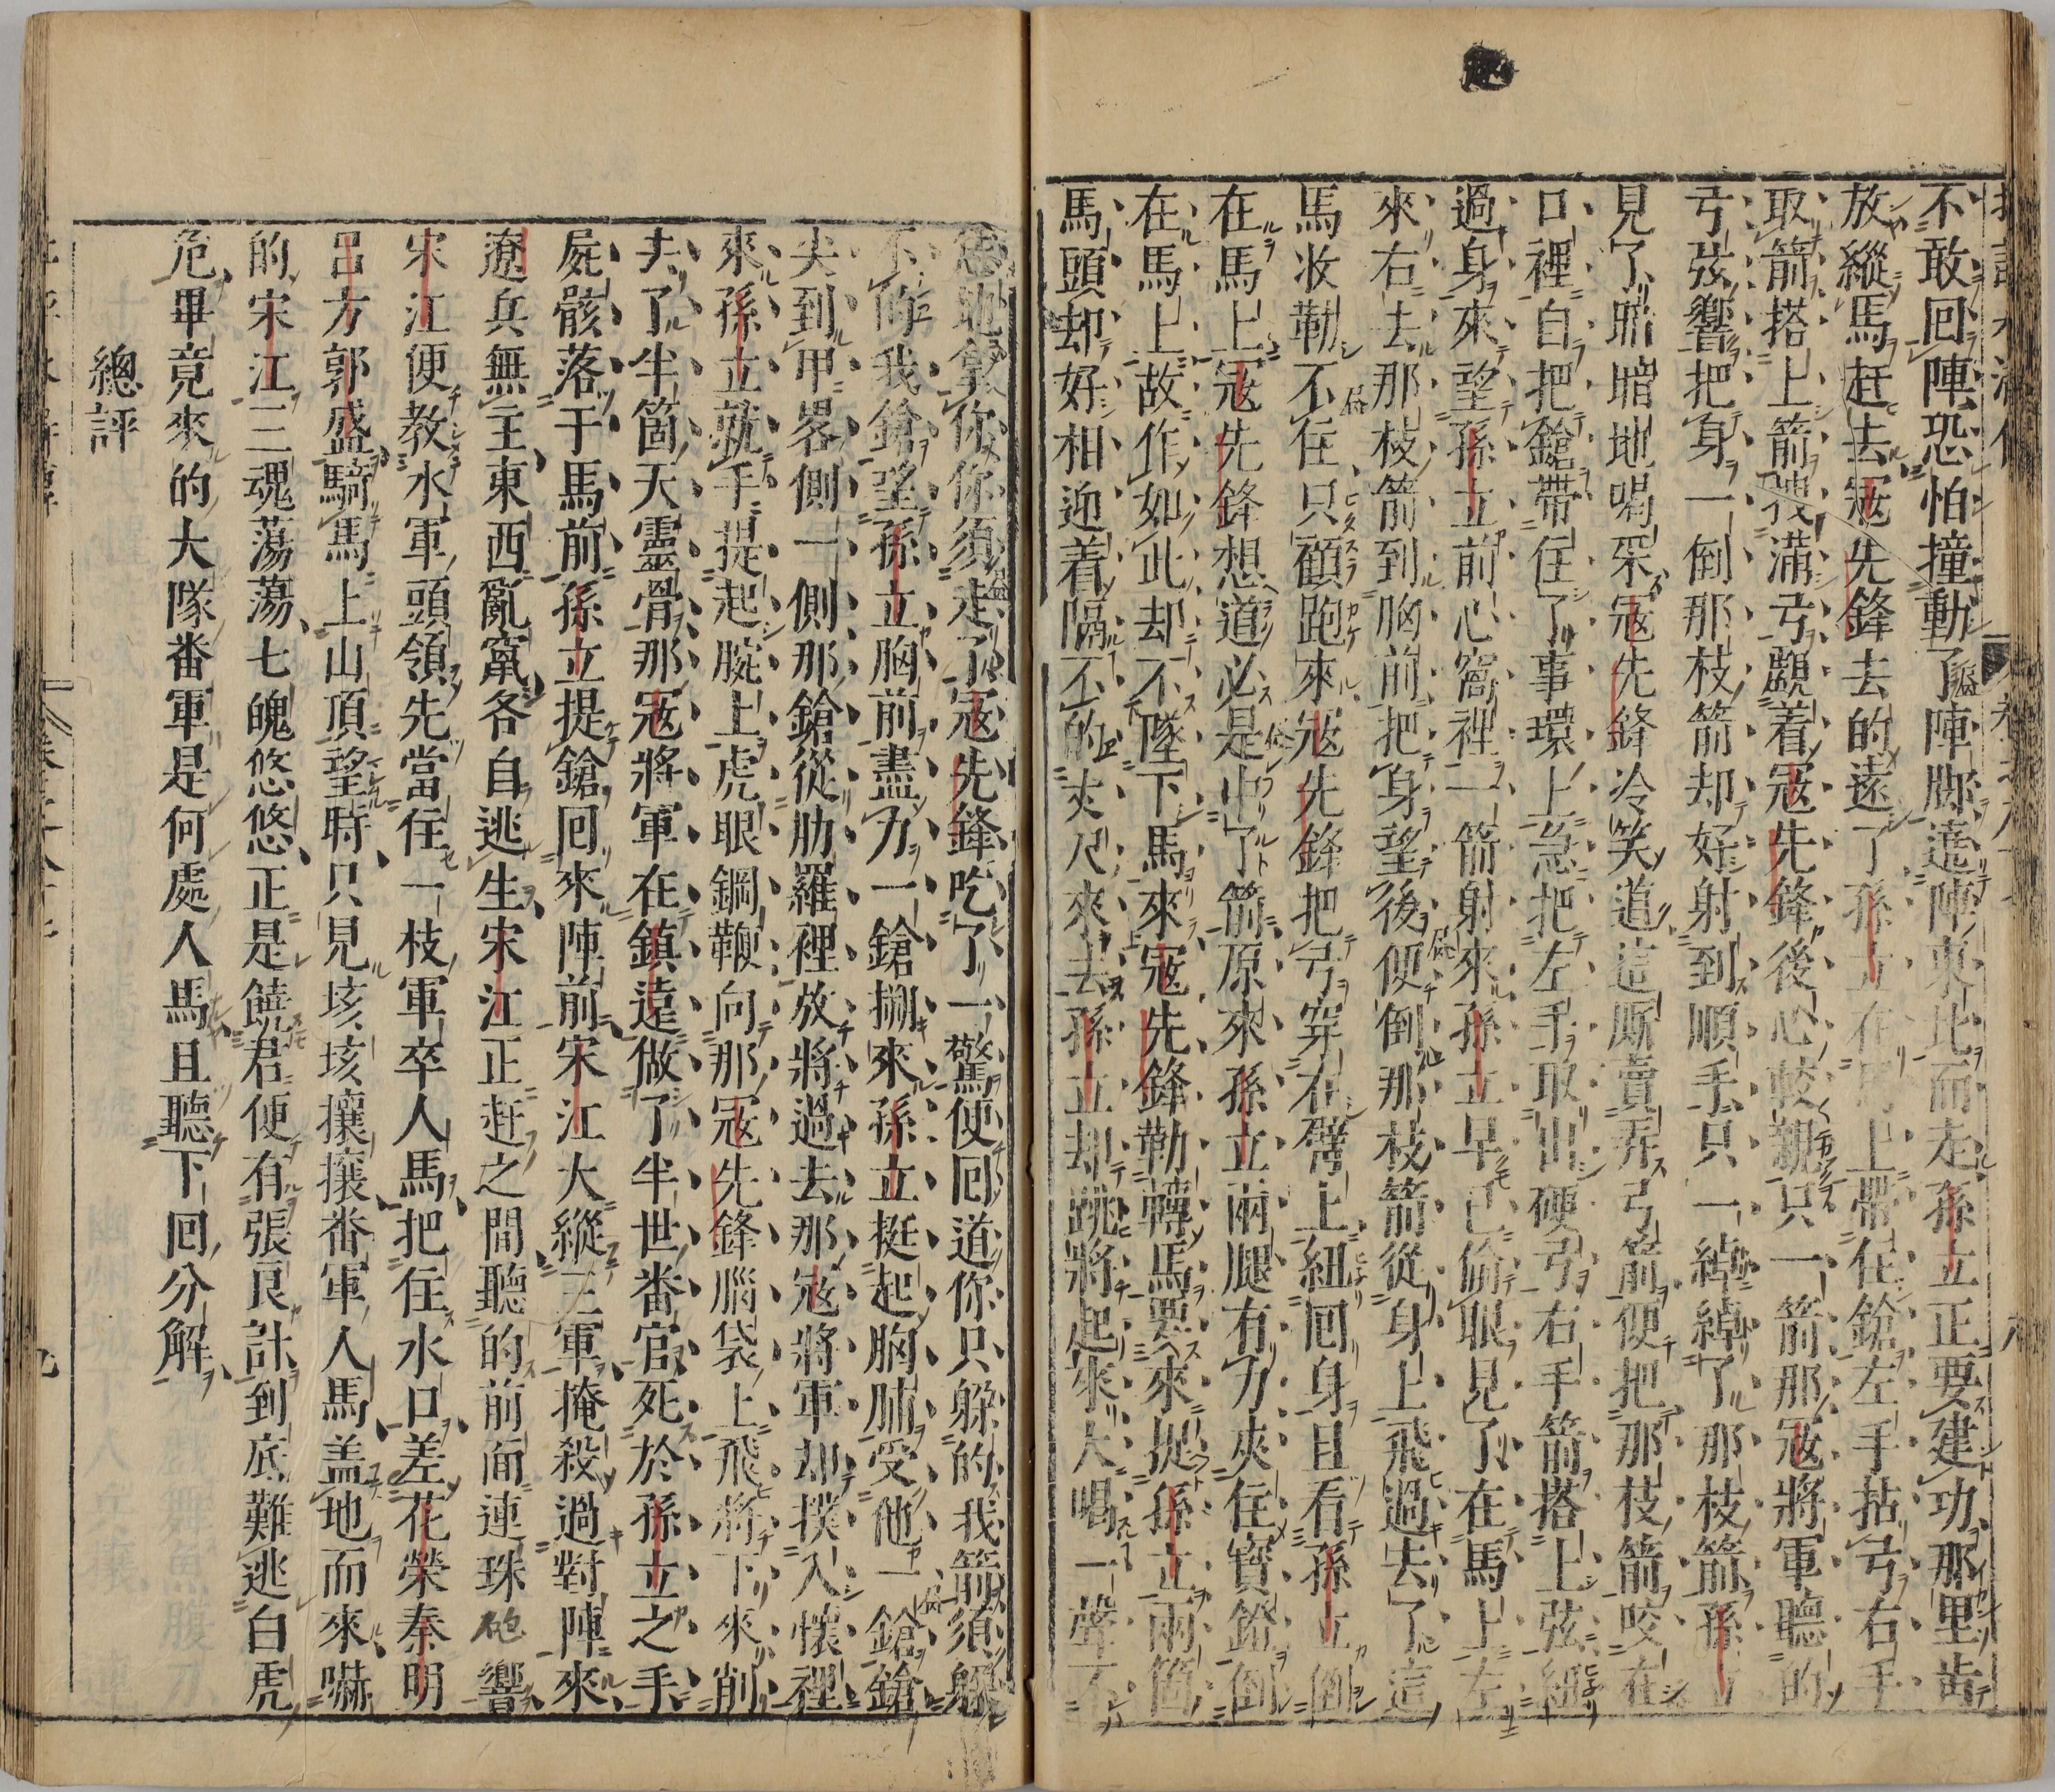 不敢回陣恐怕撞動了陣脚遶陣東北而走孫立正要建功那里肯
放縱馬赶去寇先鋒去的遠了孫立在馬上帶住鎗左手拈弓右手
取箭搭上箭拽滿弓覷着寇先鋒後心較親只一箭那寇將軍聽的
弓弦響把身一倒那枝箭却好射到順手只一綽綽了那枝箭孫立
見了暗暗地喝采寇先鋒冷笑道這厮賣弄弓箭便把那枝箭咬在
口裡自把鎗帶住了事環上急把左手取出硬弓右手箭搭上弦紐
過身來望孫立前心窩裡一箭射來孫立早已偷眼見了在馬上左
來右去那枝箭到胸前把身望後便倒那枝箭從身上飛過去了這
馬收勒不住只顧跑來寇先鋒把弓穿在臂上紐回身且看孫立倒
在馬上寇先鋒想道必是中了箭原來孫立兩腿有力夾住寶鐙倒
在馬上故作如此却不墜下馬來寇先鋒勒轉馬要來捉孫立兩箇
馬頭却好相迎着隔不的丈尺來去孫立却跳將起來大喝一聲不
恁地拿你你須走了寇先鋒吃了一驚便回道你只躲的我箭須躲
不的我鎗望孫立胸前盡力一鎗搠來孫立挺起胸脯受他一鎗鎗
尖到甲畧側一側那鎗從肋羅裡放將過去那寇將軍却撲入懷裡
來孫立就手提起腕上虎眼鋼鞭向那寇先鋒腦袋上飛將下來削
去了半箇天靈骨那寇將軍在鎮遠做了半世番官死於孫立之手
屍骸落于馬前孫立提鎗回來陣前宋江大縱三軍掩殺過對陣來
遼兵無主東西亂竄各自逃生宋江正赶之間聽的前面連珠砲響
宋江便教水軍頭領先當住一枝軍卒人馬把住水口差花榮秦明
呂方郭盛騎馬上山頂望時只見垓垓攘攘番軍人馬盖地而來嚇
的宋江三魂蕩蕩七魄悠悠正是饒君便有張良計到底難逃白虎
危畢竟來的大隊番軍是何處人馬且聽下回分解
總評